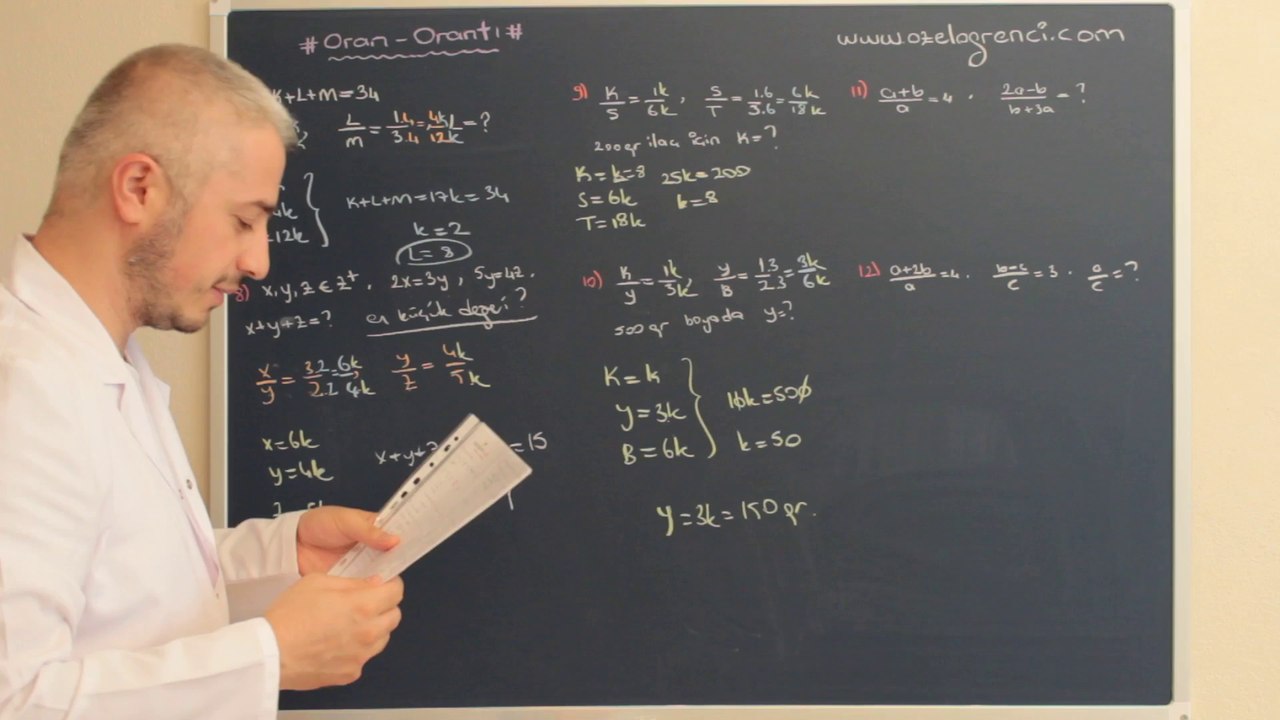 # Oran - Orantı #
www.ozelogrenci.com
K+L+M=34
L/M = 1.4/3.4 = 4k/12k = ?
4k
=12k
K+L+M=17k=34
k=2
L=8
8) x,y,z ∈ z⁺ , 2x=3y , 5y=4z .
x+y+z=? en küçük değeri?
x/y = 3.2/2.2 = 6k/4k y/z = 4k/5k
x=6k
y=4k
x+y+z =15
9) K/S = 1k/6k , S/T = 1.6/3.6 = 6k/18k
200gr ilaç için K=?
K=k=8 25k=200
S=6k k=8
T=18k
10) K/y = 1k/3k , y/B = 1.3/2.3 = 3k/6k
500gr boyada y=?
K=k
y=3k
B=6k
10k=500
k=50
y=3k=150gr.
11) a+b/a = 4 . 2a-b/b+3a = ?
12) a+2b/a = 4 . b-c/c = 3 . a/c = ?